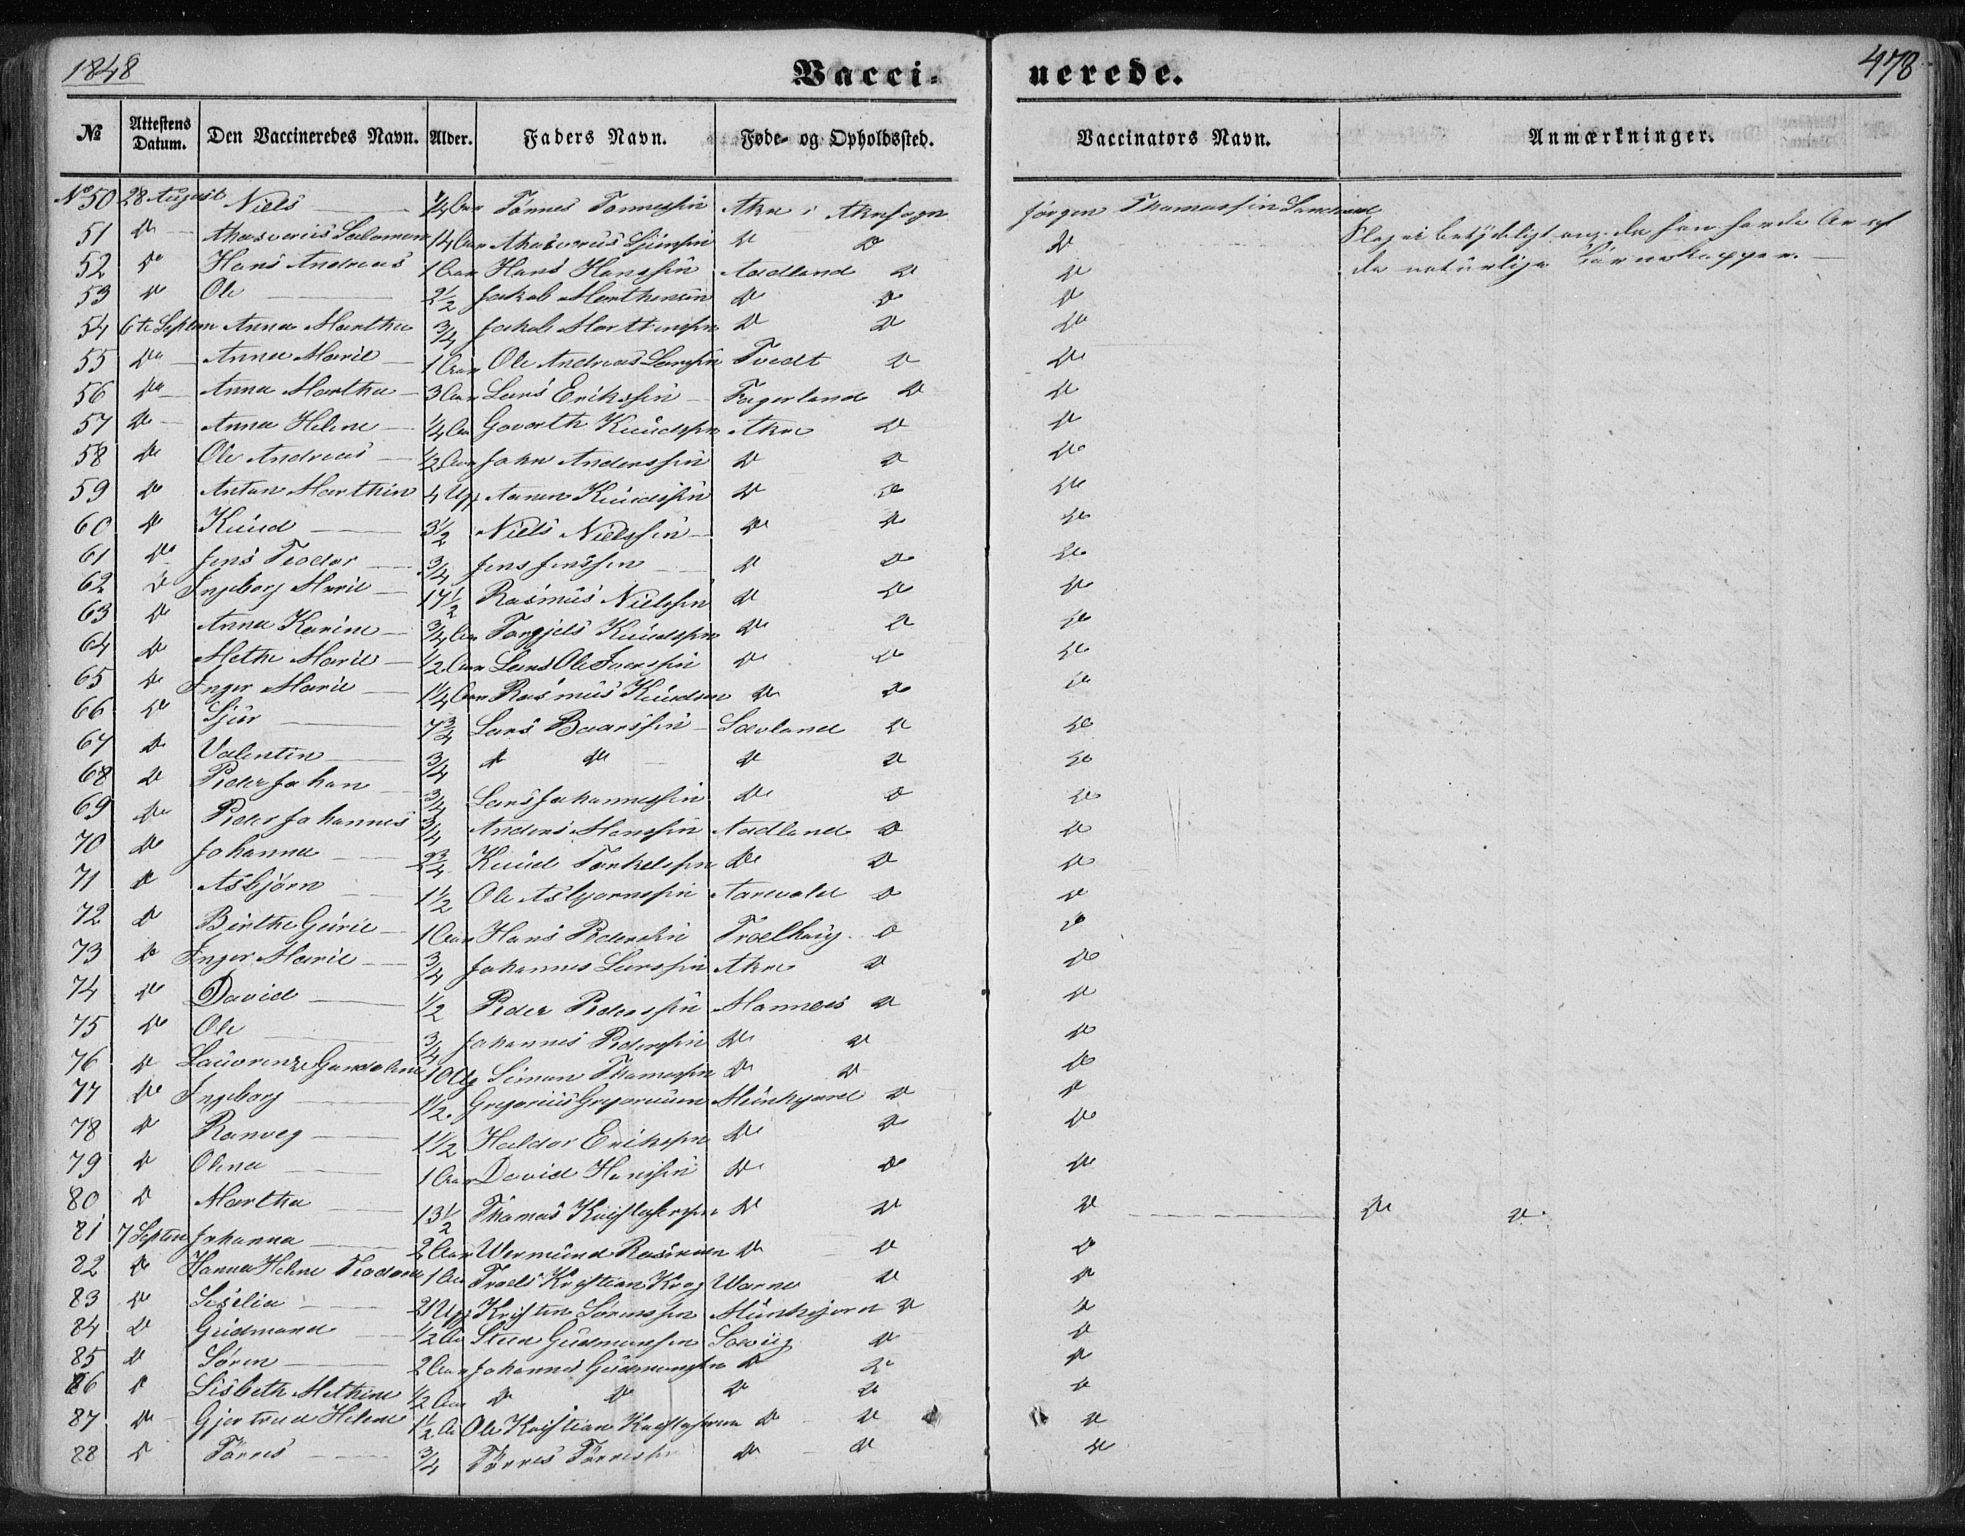 1848
Vacci-
nerede.
478
№ Attestens Datum. Den Vaccineredes Navn. Alder. Faders Navn. Føde- og Opholdssted. Vaccinators Navn. Anmærkninger.
No 50 28 August Niels 1/4 Aar Tönnes Tönnessen Akre i Akresogn Jörgen Thomassen
51 Do Ahasverus Salomon 14 Aar Ahasverus Do Do Do
52 Do Hans Andreas 1 Aar Hans Hanssen Aadland Do Do
53 Do Ole 2 1/2 Jakob Marthinsen Do Do Do
54 6te Septem Anna Martha 3/4 Jakob Marthinssen Do Do Do
55 Do Anna Marie 1 Aar Ole Andreas Larssen Tvedt Do Do
56 Do Anna Martha 3 Aar Lars Erikssen Fagerland Do Do
57 Do Anna Helene 1/4 Aar Govorth Knudssen Akre Do Do
58 Do Ole Andreas 1/2 Aar John Anderssen Do Do Do
59 Do Anton Marthin 4 Ug. Aanen Knudssen Do Do Do
60 Do Knud 3 1/2 Niels Nielssen Do Do Do
61 Do Jens Teodor 3/4 Jens Jenssen Do Do Do
62 Do Ingeborg Marie 17 1/2 Rasmus Nielssen Do Do Do
63 Do Anna Karine 3/4 Aar Torgjels Knudssen Do Do Do
64 Do Methe Marie 1/2 Aar Lars Ole Iverssen Do Do Do
65 Do Inger Marie 1 1/4 Aar Rasmus Knudsen Do Do Do
66 Do Sjur 7 3/4 Lars Baarssen Sævland Do Do
67 Do Valentin 3/4 Do Do Do Do Do
68 Do Peder Johan 3/4 Lars Johannessen Do Do Do
69 Do Peder Johannes 3/4 Anders Hanssen Aadland Do Do
70 Do Johanna 2 3/4 Knud Torkelssen Do Do Do
71 Do Asbjörn 1 1/2 Ole Asbjornssen Aarevald Do Do
72 Do Birthe Gurie 1 Aar Hans Pederssen Troelhaug Do Do
73 Do Inger Marie 3/4 Johannes Larssen Akre Do Do
74 Do David 1/2 Peder Pederssen Mannæs Do Do
75 Do Ole 3/4 Johannes Pederssen Do Do Do
76 Do Laurenze Gundeline 10 Ug Simon Thomassen Do Do Do
77 Do Ingeborg 1 1/2 Gregorius Gregoriussen Munkejord Do Do
78 Do Ranveg 1 1/2 Haldor Erikssen Do Do Do
79 Do Olena 1 Aar David Hanssen Do Do Do
80 Do Martha 13 1/2 Thomas Kristofferssen Do Do Do Do Do
81 7 Septem Johanna 2 Aar Wermund Rasmussen Do Do Do
82 Do Hanna Helene Teodora 1 Aar Troels Kristian Krog Warne Do Do
83 Do Siselia 21 Ug. Kristen Sörenssen Munkejord Do Do
84 Do Gudmand 1/2 Aar Steen Gudmanssen Sævig Do Do
85 Do Sören 2 Aar Johannes Gudmanssen Do Do Do
86 Do Lisbeth Methine 1/2 Aar Do Do Do Do Do
87 Do Gjertrud Helene 1 1/2 Aar Ole Kristian Kristoffersen Do Do Do
88 Do Törres 3/4 Törres Törressen Do Do Do